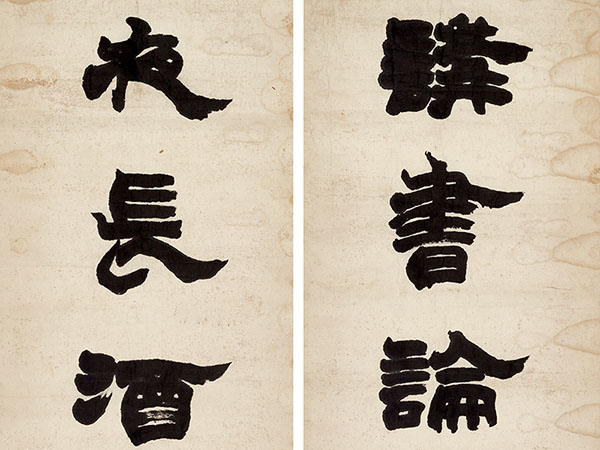 購書論
夜長酒